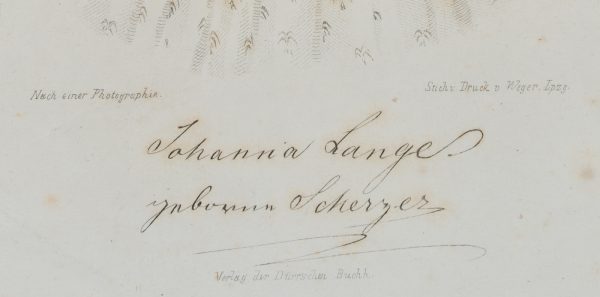 Nach einer Photographie.
Stich u. Druck v. Weger, Lpzg.
Johanna Lange.
geborne Scherzer
Verlag der Dürrschen Buchh.